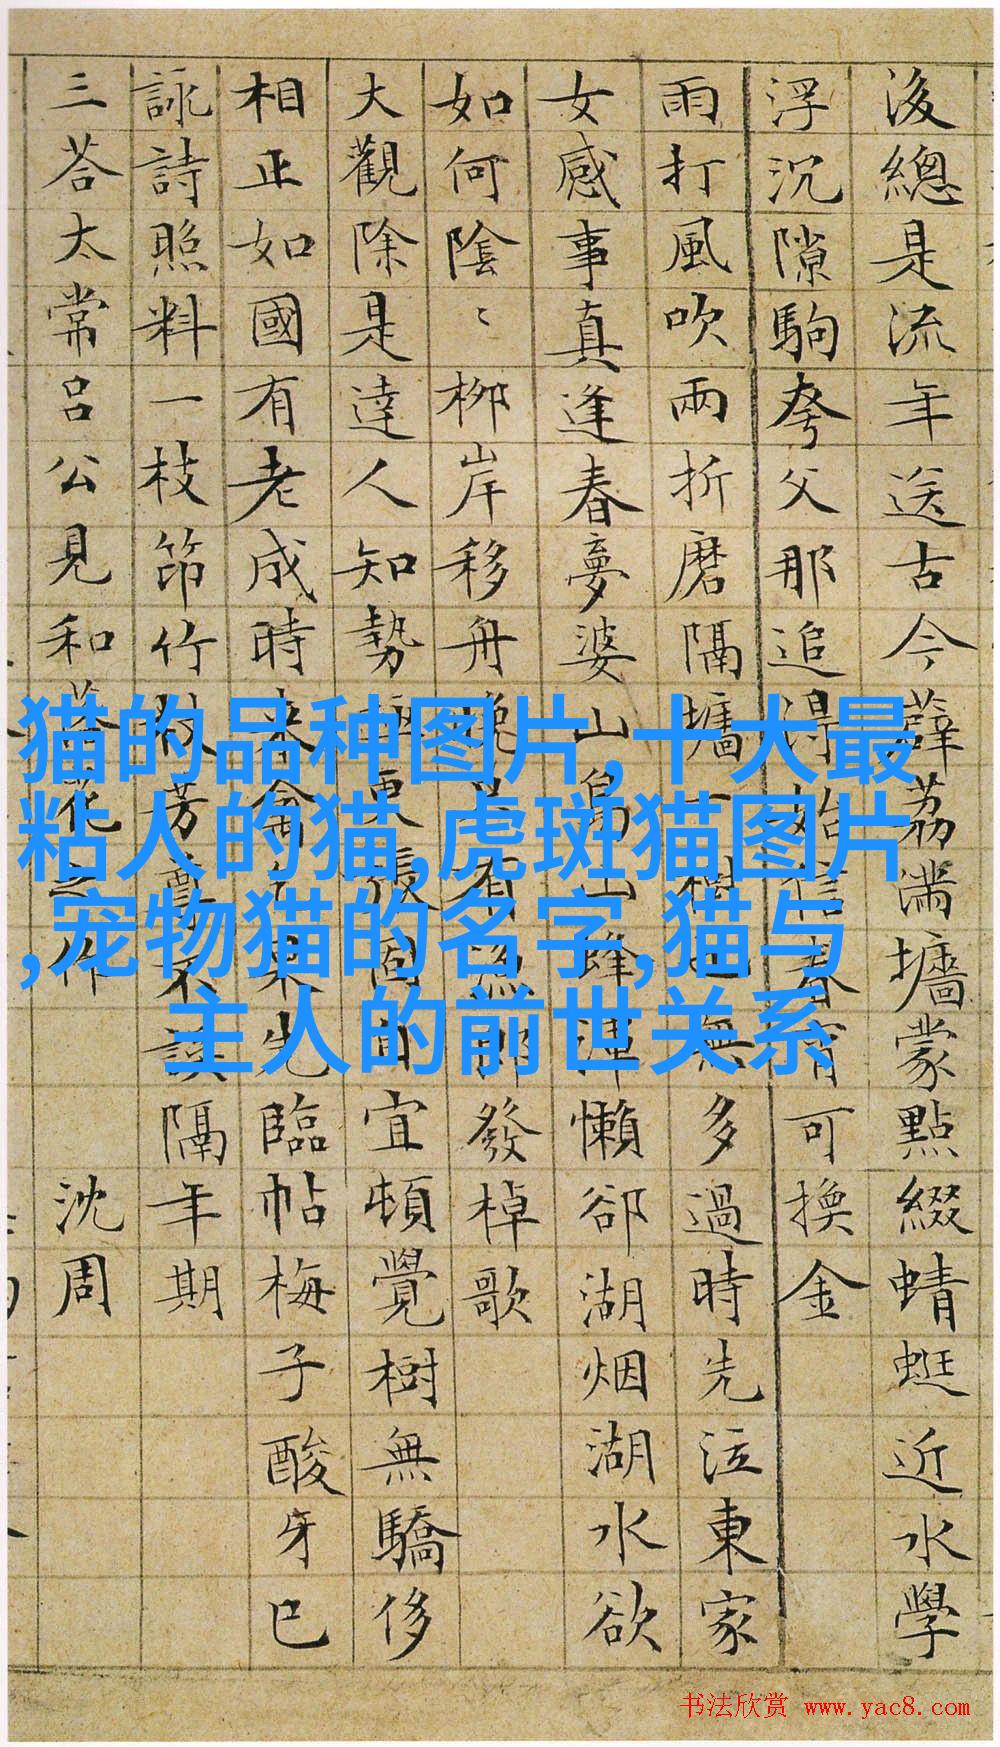 後總是流年送古今薜荔滿墻蒙點綴蜻蜓近水學
浮沉隙駒夸父那追得始信春宵可換金
雨打風吹兩折磨隔墻一樹也無多過時先泣東家
女感事真逢春夢婆山鳥山蜂渾懶卻湖烟湖水欲
如何陰〻柳岸移舟晚有漁郎發棹歌
大觀除是達人知勢極更張固自宜頓覺樹無驕侈
相正如國有老成時來禽乞果先臨帖梅子酸牙已
詠詩照料一枝笻竹杖芳尊不誤隔年期
三荅太常呂公見和落花之作 沈周
猫的品种图片,十大最
粘人的猫,虎斑猫图片
,宠物猫的名字,猫与
主人的前世关系
书法欣赏 www.yac8.com